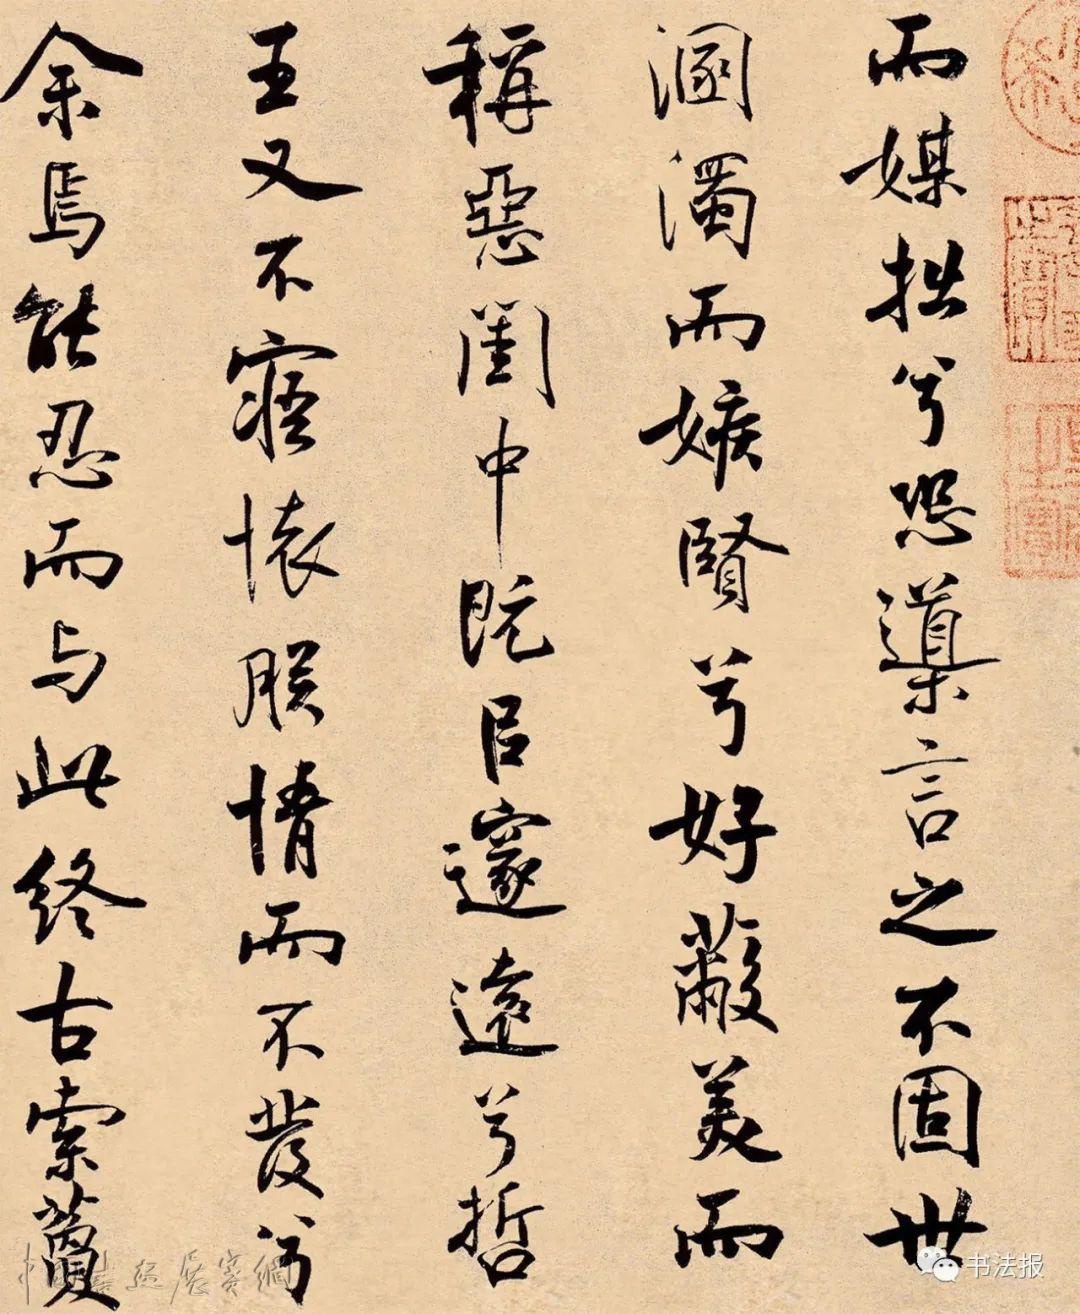 而媒拙兮恐導言之不固世
溷濁而嫉賢兮好蔽美而
稱惡閨中既㠯邃遠兮哲
王又不寤懷朕情而不發兮
余焉能忍而与此終古索藑
书法报